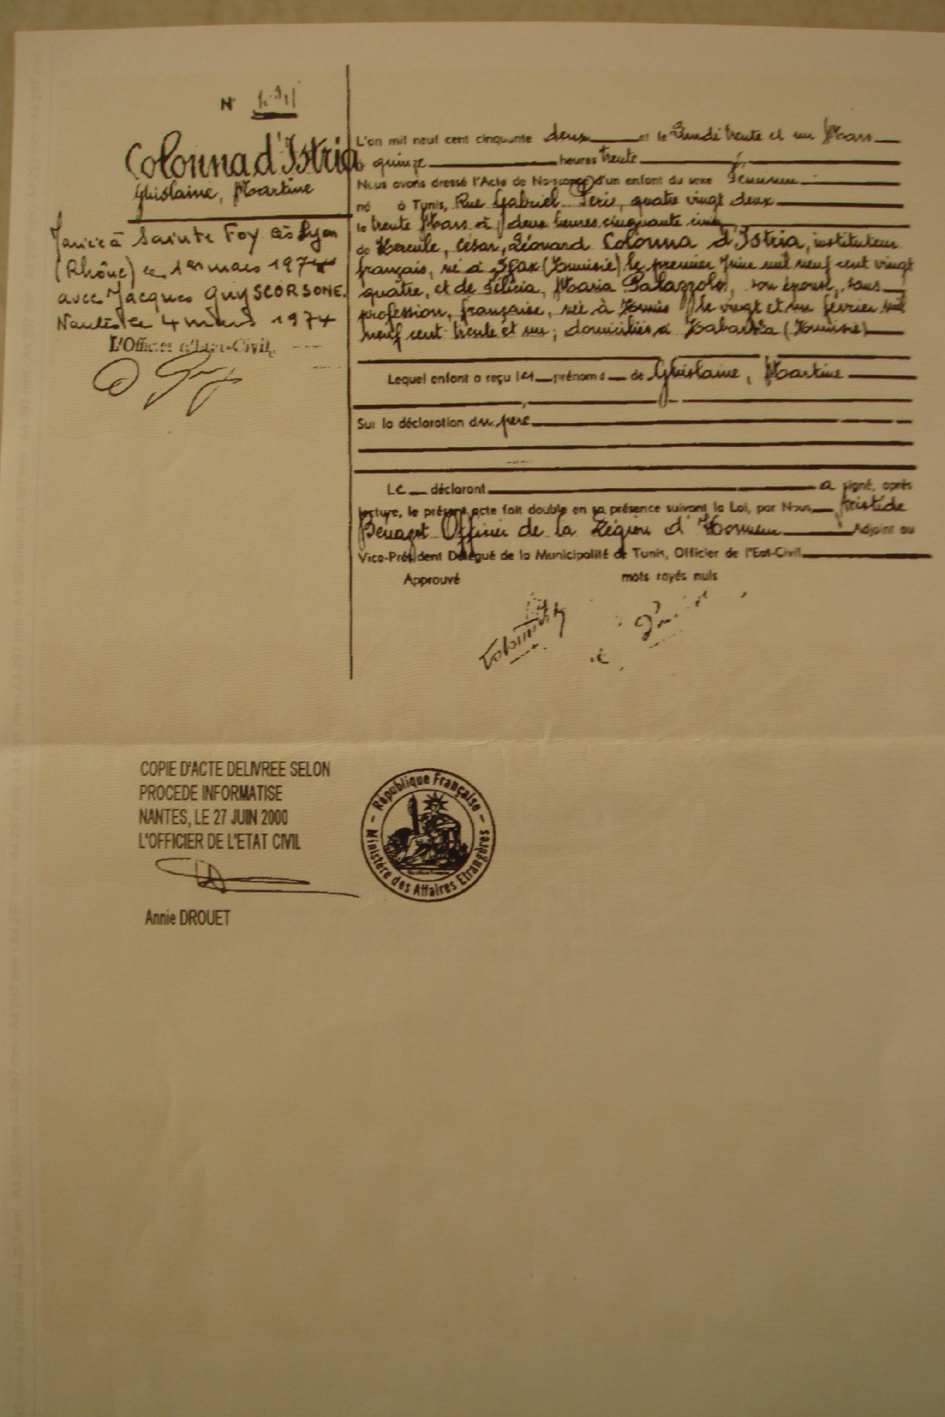 N°
Colonna d'Istria
Ghislaine, Martine
Mariée à Sainte Foy lès Lyon
(Rhône) le 1er mars 1974
avec Jacques Guy SCORSONE.
Nantes le 4 mars 1974
L'Officier d'Etat-Civil,
L'an mil neuf cent cinquante deux et le Lundi trente et un Mars
à quinze heures trente
Nous avons dressé l'Acte de Naissance d'un enfant du sexe féminin
né à Tunis, Rue Gabriel Péris, quatre vingt deux
le trente Mars à deux heures cinquante cinq
de Hercule, César, Léonard Colonna d'Istria, instituteur
français, né à Sfax (Tunisie) le premier Juin mil neuf cent vingt
quatre, et de Félicia, Maria Palazzolo, son épouse, sans
profession, française, née à Tunis le vingt et un février mil
neuf cent trente et un; domiciliés à Tabarka (Tunisie)
Lequel enfant a reçu les prénoms de Ghislaine, Martine
Sur la déclaration du père
Le déclarant a signé, après
lecture, le présent acte fait double en sa présence suivant la Loi, par Nous Aristide
Officier de la Légion d'Honneur Adjoint au
Vice-Président Délégué de la Municipalité de Tunis, Officier de l'Eat-Civil
Approuvé mots rayés nuls
COPIE D'ACTE DELIVREE SELON
PROCEDE INFORMATISE
NANTES, LE 27 JUIN 2000
L'OFFICIER DE L'ETAT CIVIL
Annie DROUET
République Française
Ministère des Affaires Etrangères